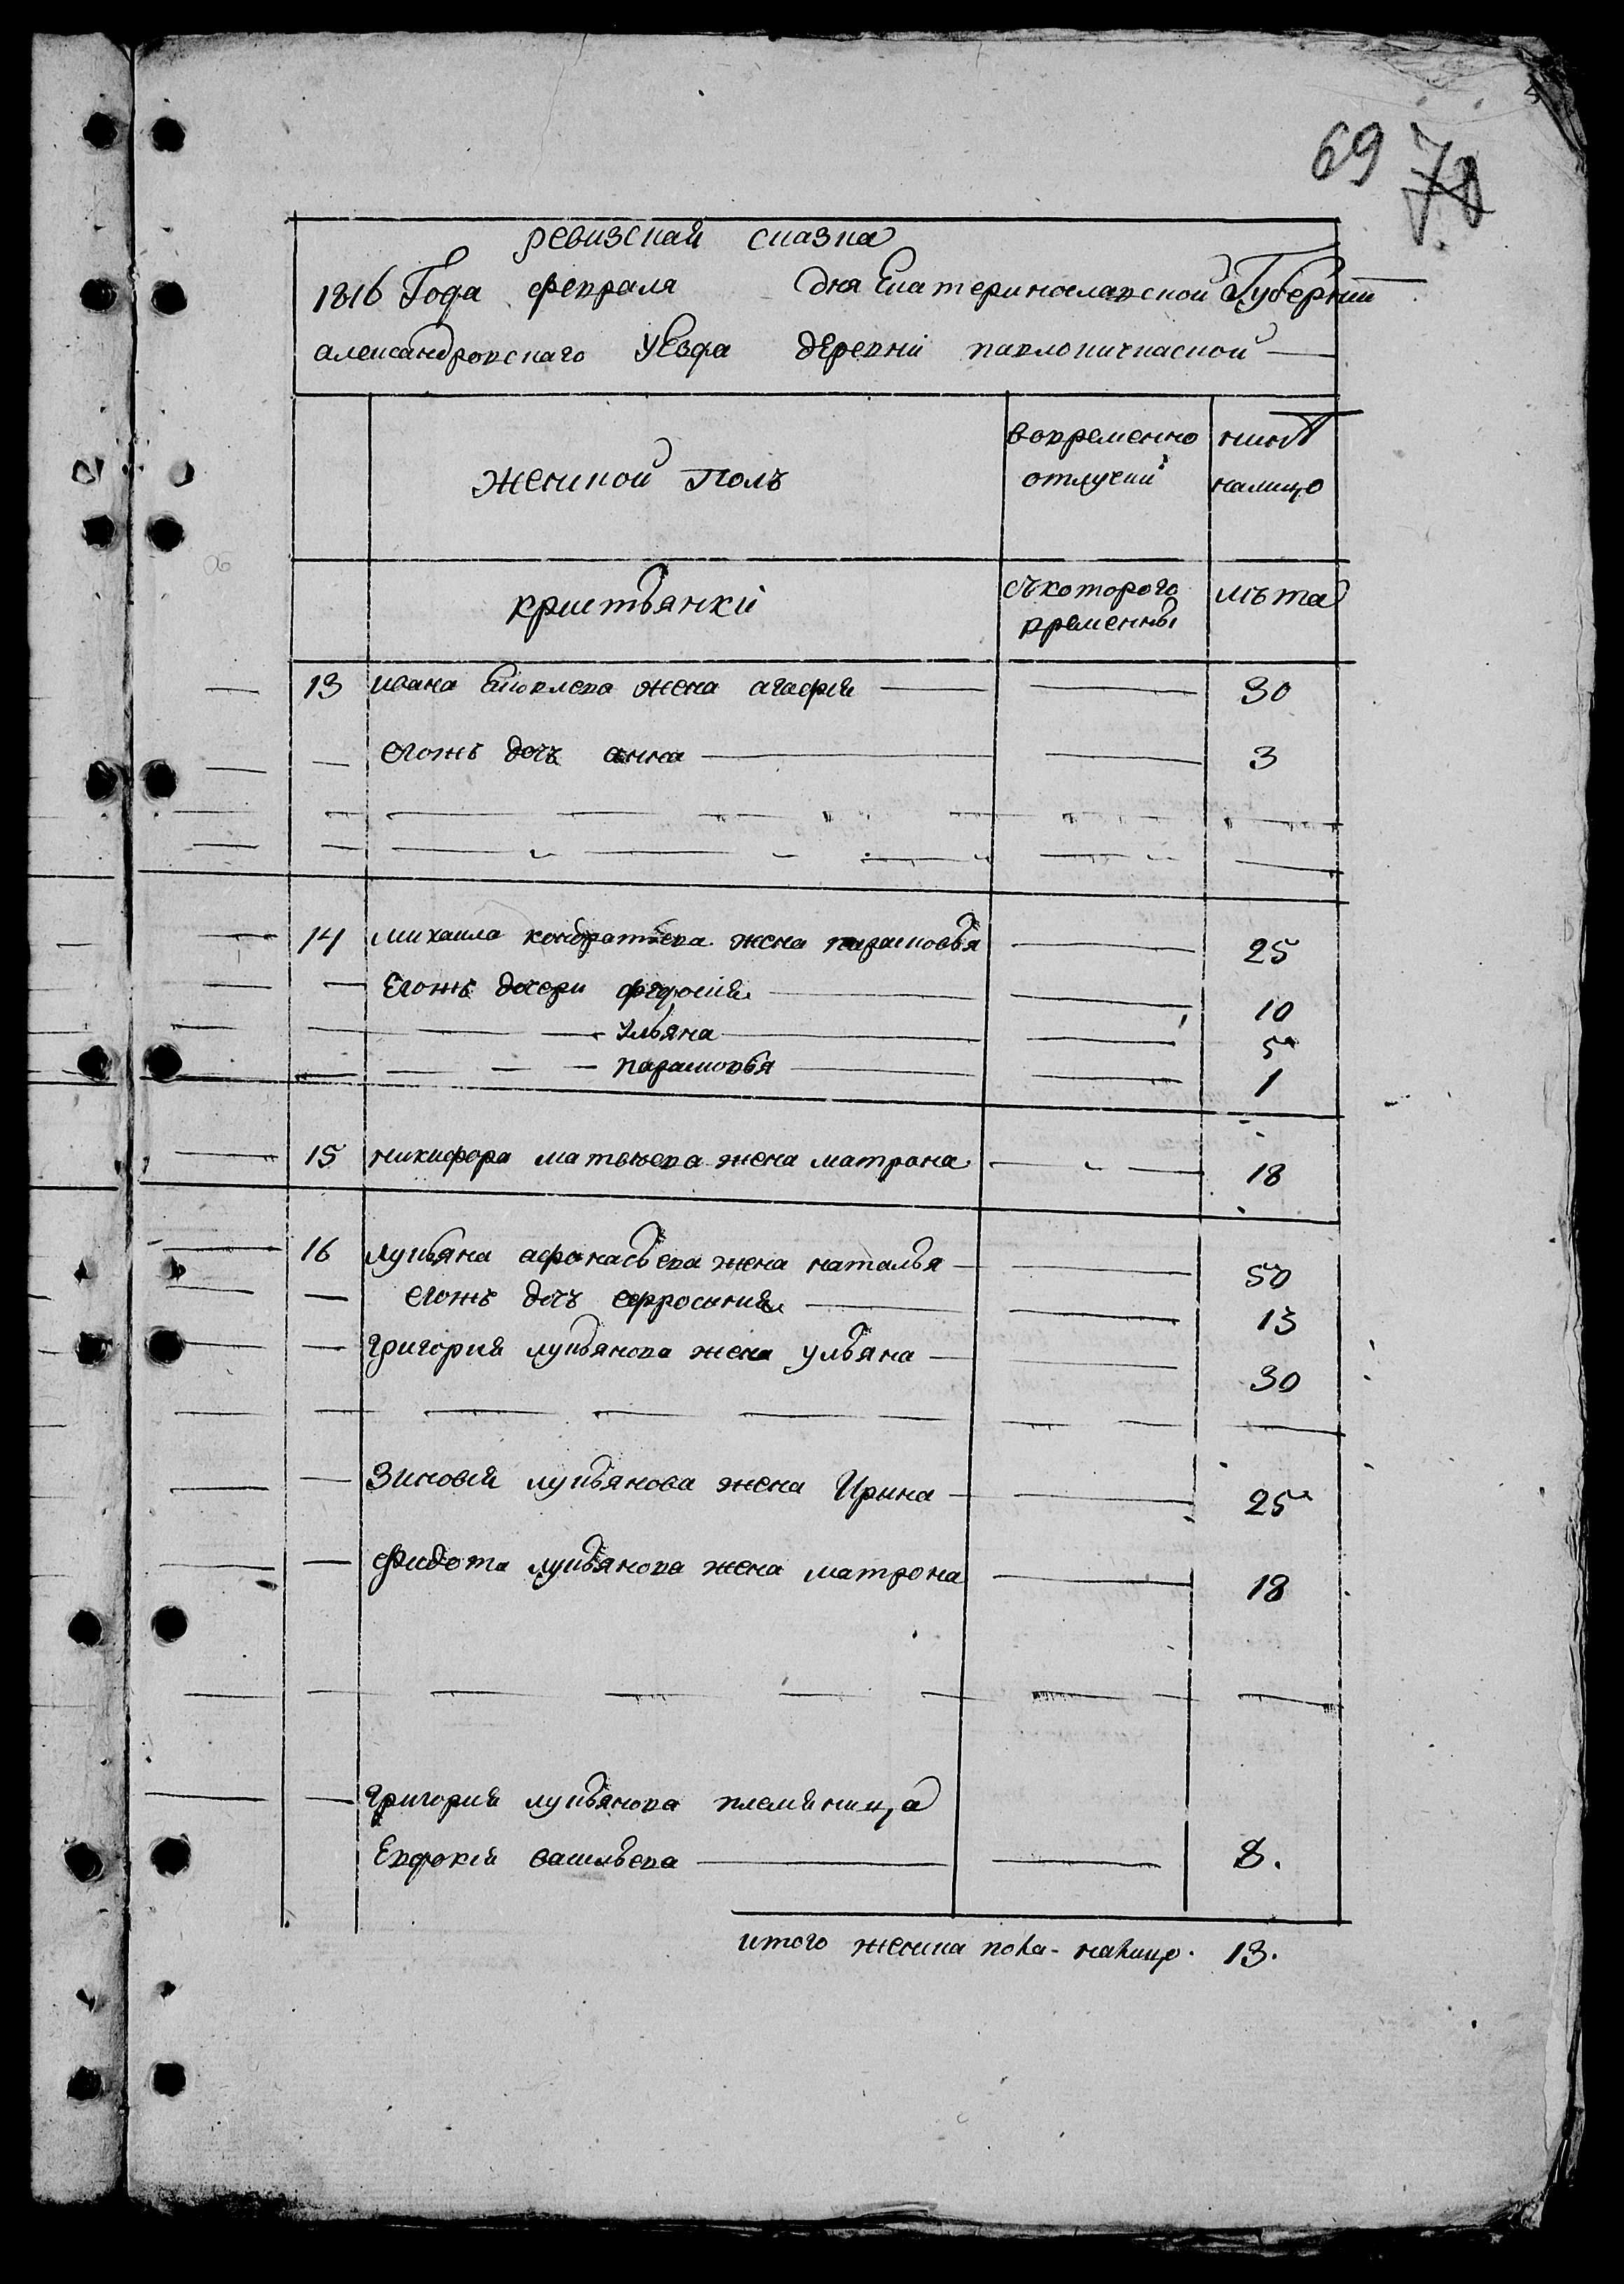 69 70
ревизская сказка
1816 Года февраля дня Екатеринославской Губернии
александровского уезда деревни павлокичкаской
женской полъ
вовременно отлучки
ныне налицо
кристьянкі
съкоторого временны
лъта
13 ивана жена агафия 30
егожъ дочь анна 3
14 михаила кондратьева жена парасковья 25
Егожъ дочери федосия 10
Ульяна 5
парасковья 1
15 никифора матвеева жена матрона 18
16 лукьяна афонасьева жена наталья 50
егожъ дочъ ефросиния 13
григория лукьянова жена ульяна 30
Зиновия лукьянова жена Ирина 25
Федота лукьянова жена матрона 18
григория лукьянова племяница
Евдокия васильева 8.
итого женска пола налицо. 13.